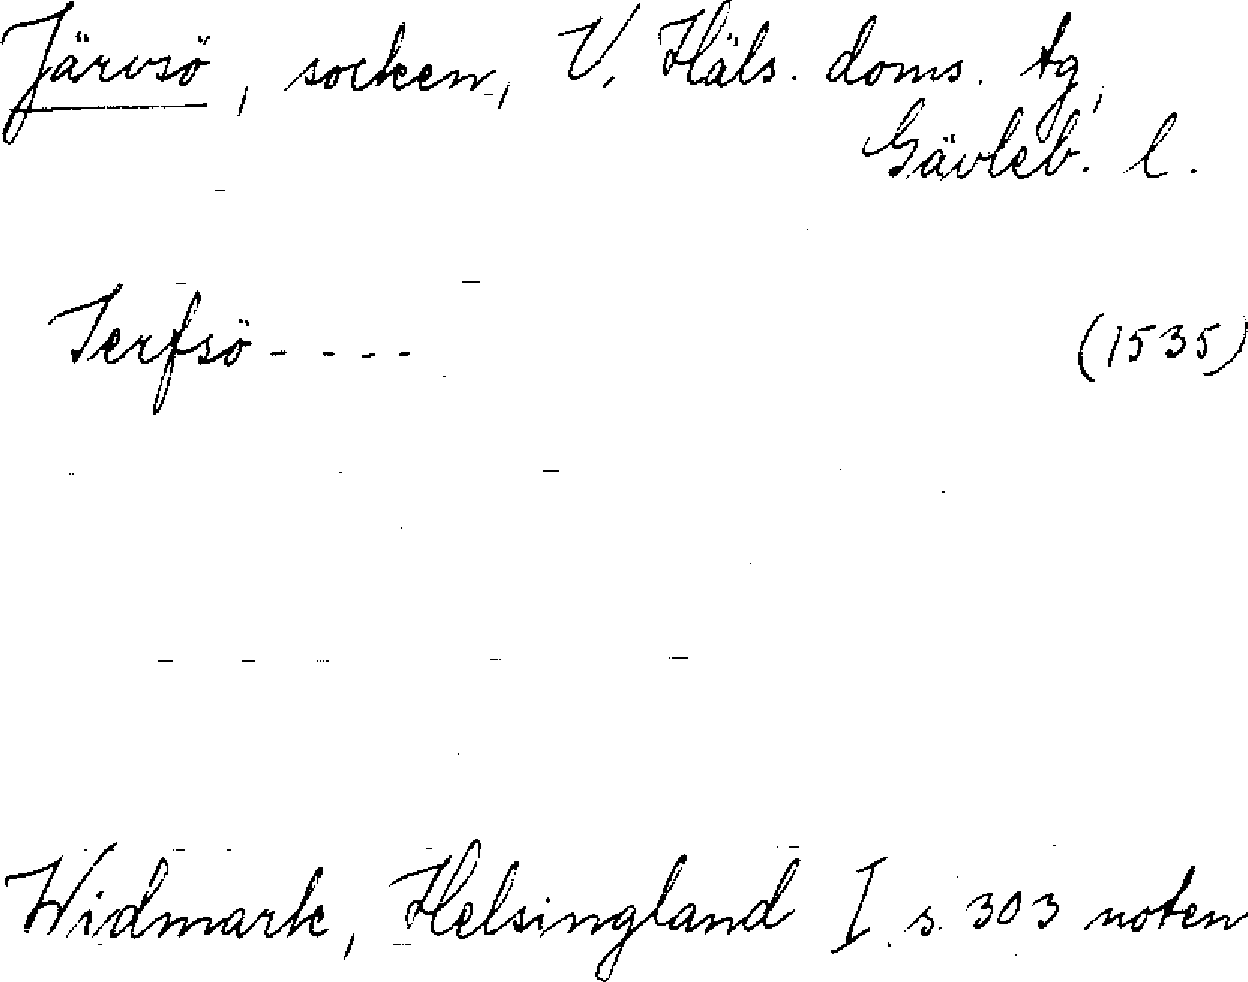 Järvsö, socken, V. Häls. doms. tg,
Gävleb. l.
Jerfsö - - - - (1535)
Widmark, Helsingland I s. 303 noten